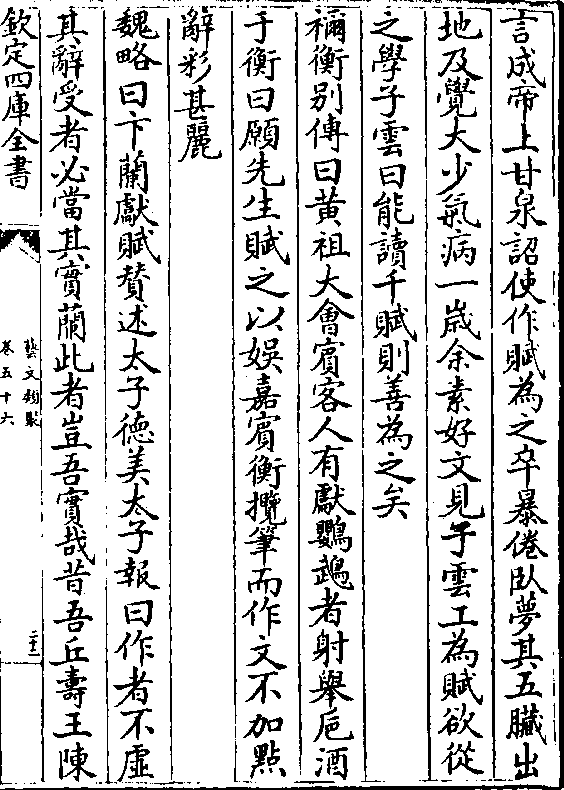 言成帝上甘泉詔使作賦為之卒暴倦臥夢其五臟出
地及覺大少氣病一歲余素好文見子雲工為賦欲從
之學子雲曰能讀千賦則善為之矣
禰衡別傳曰黃祖大會賓客人有獻鸚鵡者射舉巵酒
于衡曰願先生賦之以娛嘉賓衡攬筆而作文不加點
辭彩甚麗
魏略曰卞蘭獻賦贊述太子德美太子報曰作者不虛
其辭受者必當其實蘭此者豈吾實哉昔吾丘壽王陳
欽定四庫全書
藝文類聚
卷五十六
二十二